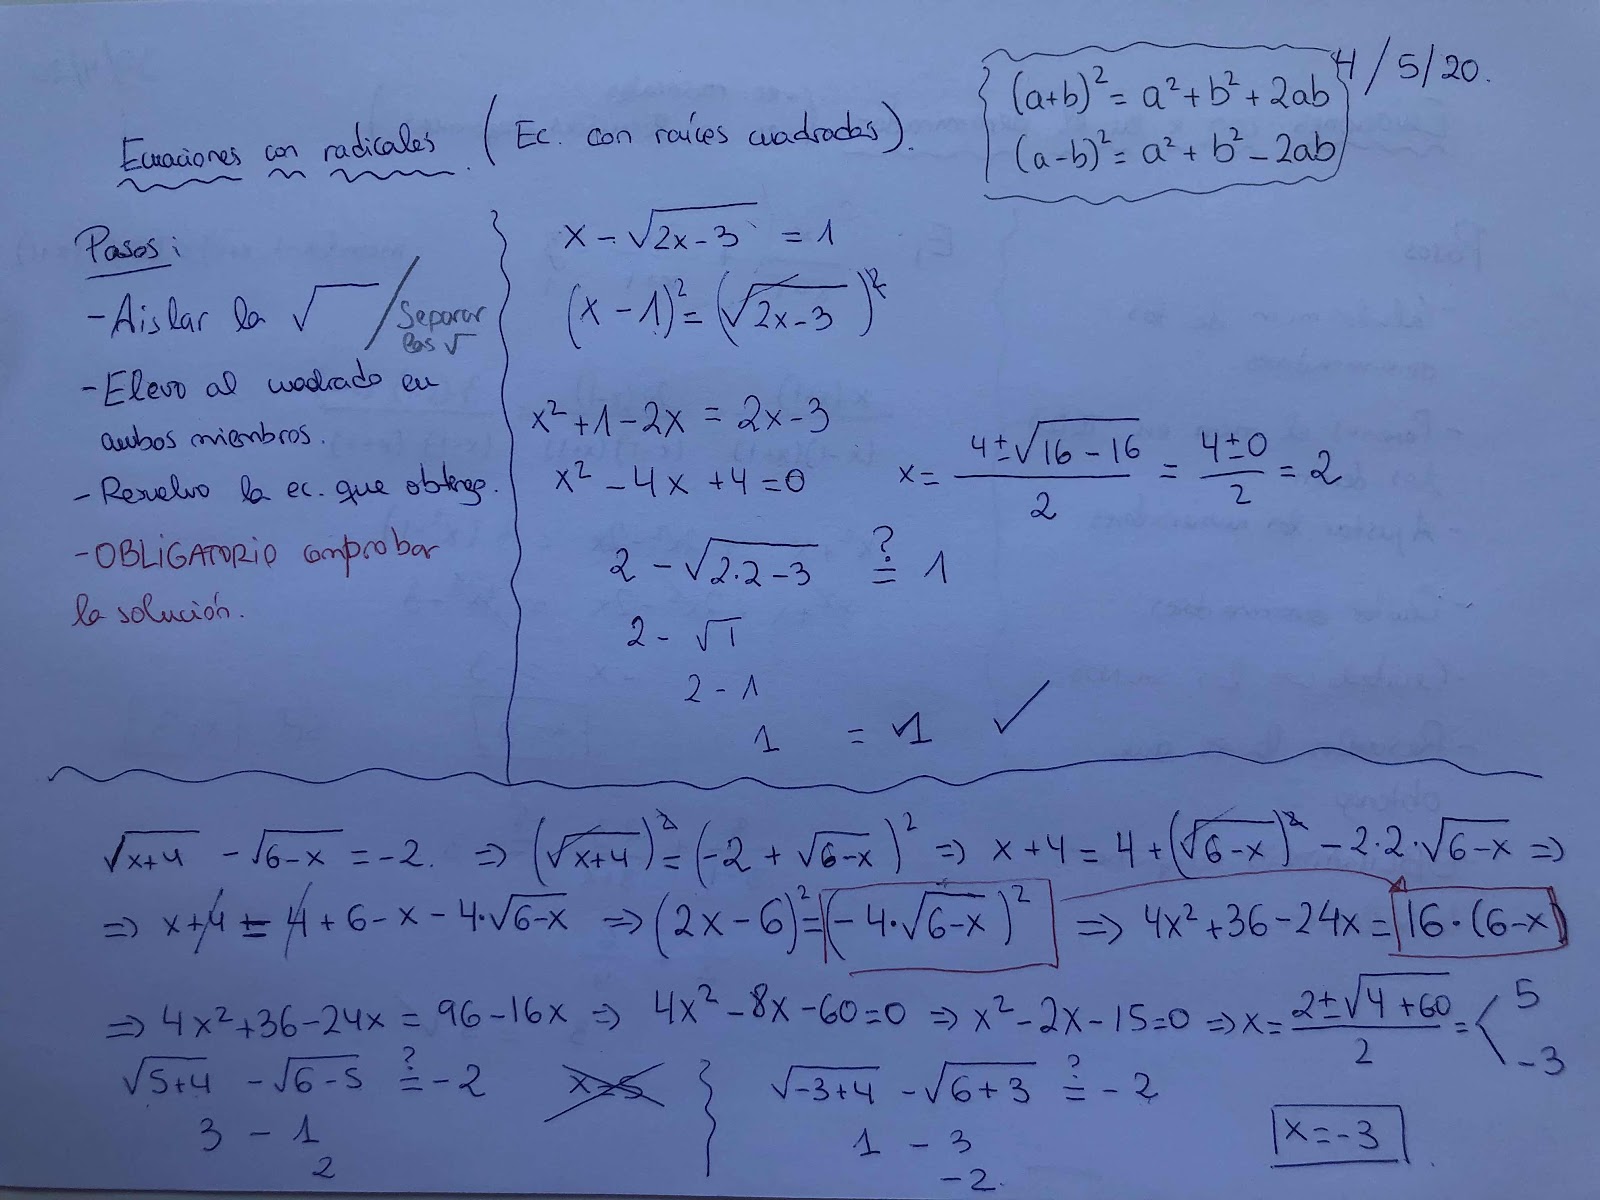 4/5/20.
(a+b)² = a² + b² + 2ab
(a-b)² = a² + b² - 2ab
Ecuaciones con radicales. (Ec. con raíces cuadradas).
Pasos:
- Aislar la √ / Separar las √
- Elevo al cuadrado en
ambos miembros.
- Resuelvo la ec. que obtengo.
- OBLIGATORIO comprobar
la solución.
x - √(2x-3) = 1
(x - 1)² = (√(2x-3))²
x² + 1 - 2x = 2x - 3
x² - 4x + 4 = 0    x = (4 ± √(16 - 16))/2 = (4 ± 0)/2 = 2
2 - √(2·2-3) ≟ 1
2 - √1
2 - 1
1 = 1 ✓
√(x+4) - √(6-x) = -2. ⇒ (√(x+4))² = (-2 + √(6-x))² ⇒ x+4 = 4 + (√(6-x))² - 2·2·√(6-x) ⇒
⇒ x+4 = 4 + 6 - x - 4·√(6-x) ⇒ (2x - 6)² = (-4·√(6-x))² ⇒ 4x² + 36 - 24x = 16·(6-x)
⇒ 4x² + 36 - 24x = 96 - 16x ⇒ 4x² - 8x - 60 = 0 ⇒ x² - 2x - 15 = 0 ⇒ x = (2 ± √(4+60))/2 = < 5
-3
√(5+4) - √(6-5) ≟ -2    x=5
3 - 1
2
√(-3+4) - √(6+3) ≟ -2
1 - 3
-2.
x = -3